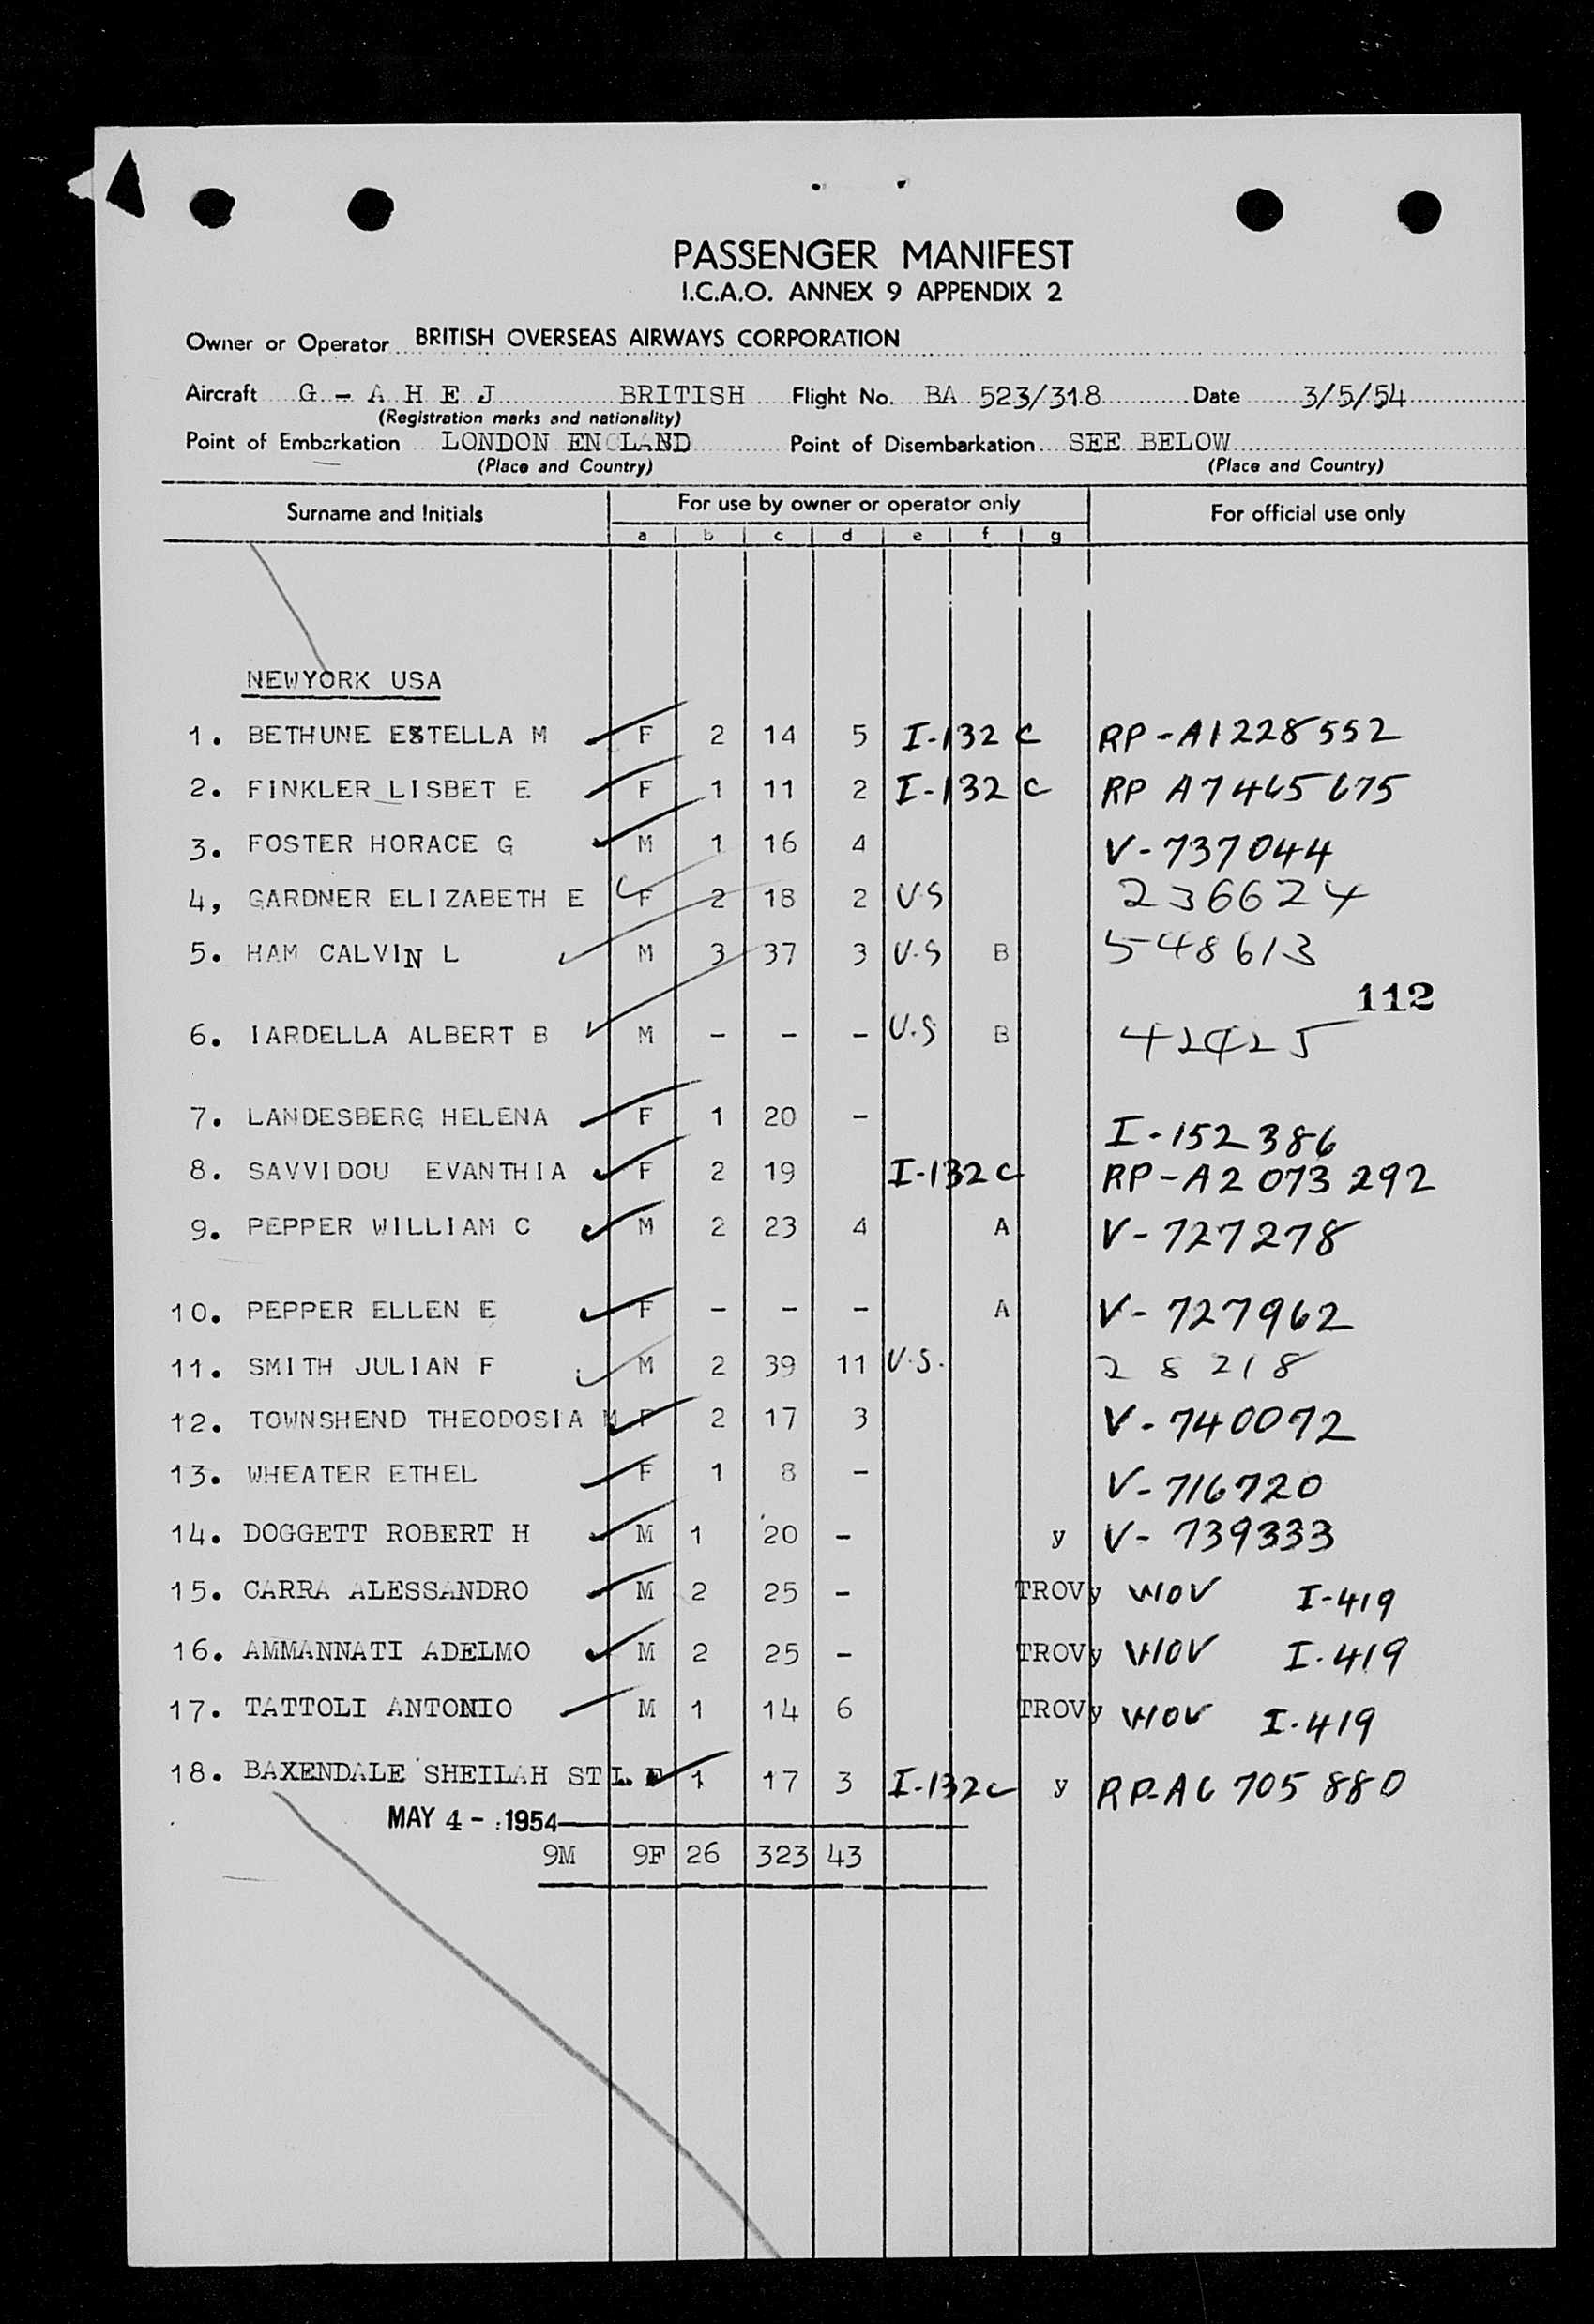 PASSENGER MANIFEST
I.C.A.O. ANNEX 9 APPENDIX 2
Owner or Operator BRITISH OVERSEAS AIRWAYS CORPORATION
Aircraft G - A H E J BRITISH Flight No. BA 523/318 Date 3/5/54
(Registration marks and nationality)
Point of Embarkation LONDON ENGLAND Point of Disembarkation SEE BELOW
(Place and Country) (Place and Country)
Surname and Initials For use by owner or operator only For official use only
a b c d e f g
NEWYORK USA
1. BETHUNE ESTELLA M F 2 14 5 I-132 C RP-A1228552
2. FINKLER LISBET E F 1 11 2 I-132 C RP A7465675
3. FOSTER HORACE G M 1 16 4 V-737044
4, GARDNER ELIZABETH E F 2 18 2 U.S 236624
5. HAM CALVIN L M 3 37 3 U.S B 548613
112
6. IARDELLA ALBERT B M - - - U.S B
7. LANDESBERG HELENA F 1 20 - I-152386
8. SAVVIDOU EVANTHIA F 2 19 I-132 C RP-A2 073 292
9. PEPPER WILLIAM C M 2 23 4 A V-727278
10. PEPPER ELLEN E F - - - A V-727962
11. SMITH JULIAN F M 2 39 11 U.S. 28218
12. TOWNSHEND THEODOSIA M F 2 17 3 V-740072
13. WHEATER ETHEL F 1 8 - V-716720
14. DOGGETT ROBERT H M 1 20 - y V-739333
15. CARRA ALESSANDRO M 2 25 - TROVy WOV I-419
16. AMMANNATI ADELMO M 2 25 - TROVy WOV I-419
17. TATTOLI ANTONIO M 1 14 6 TROVy WOV I-419
18. BAXENDALE SHEILAH ST L. F 1 17 3 I-132C y RP-A6 705 880
MAY 4 - 1954
9M 9F 26 323 43